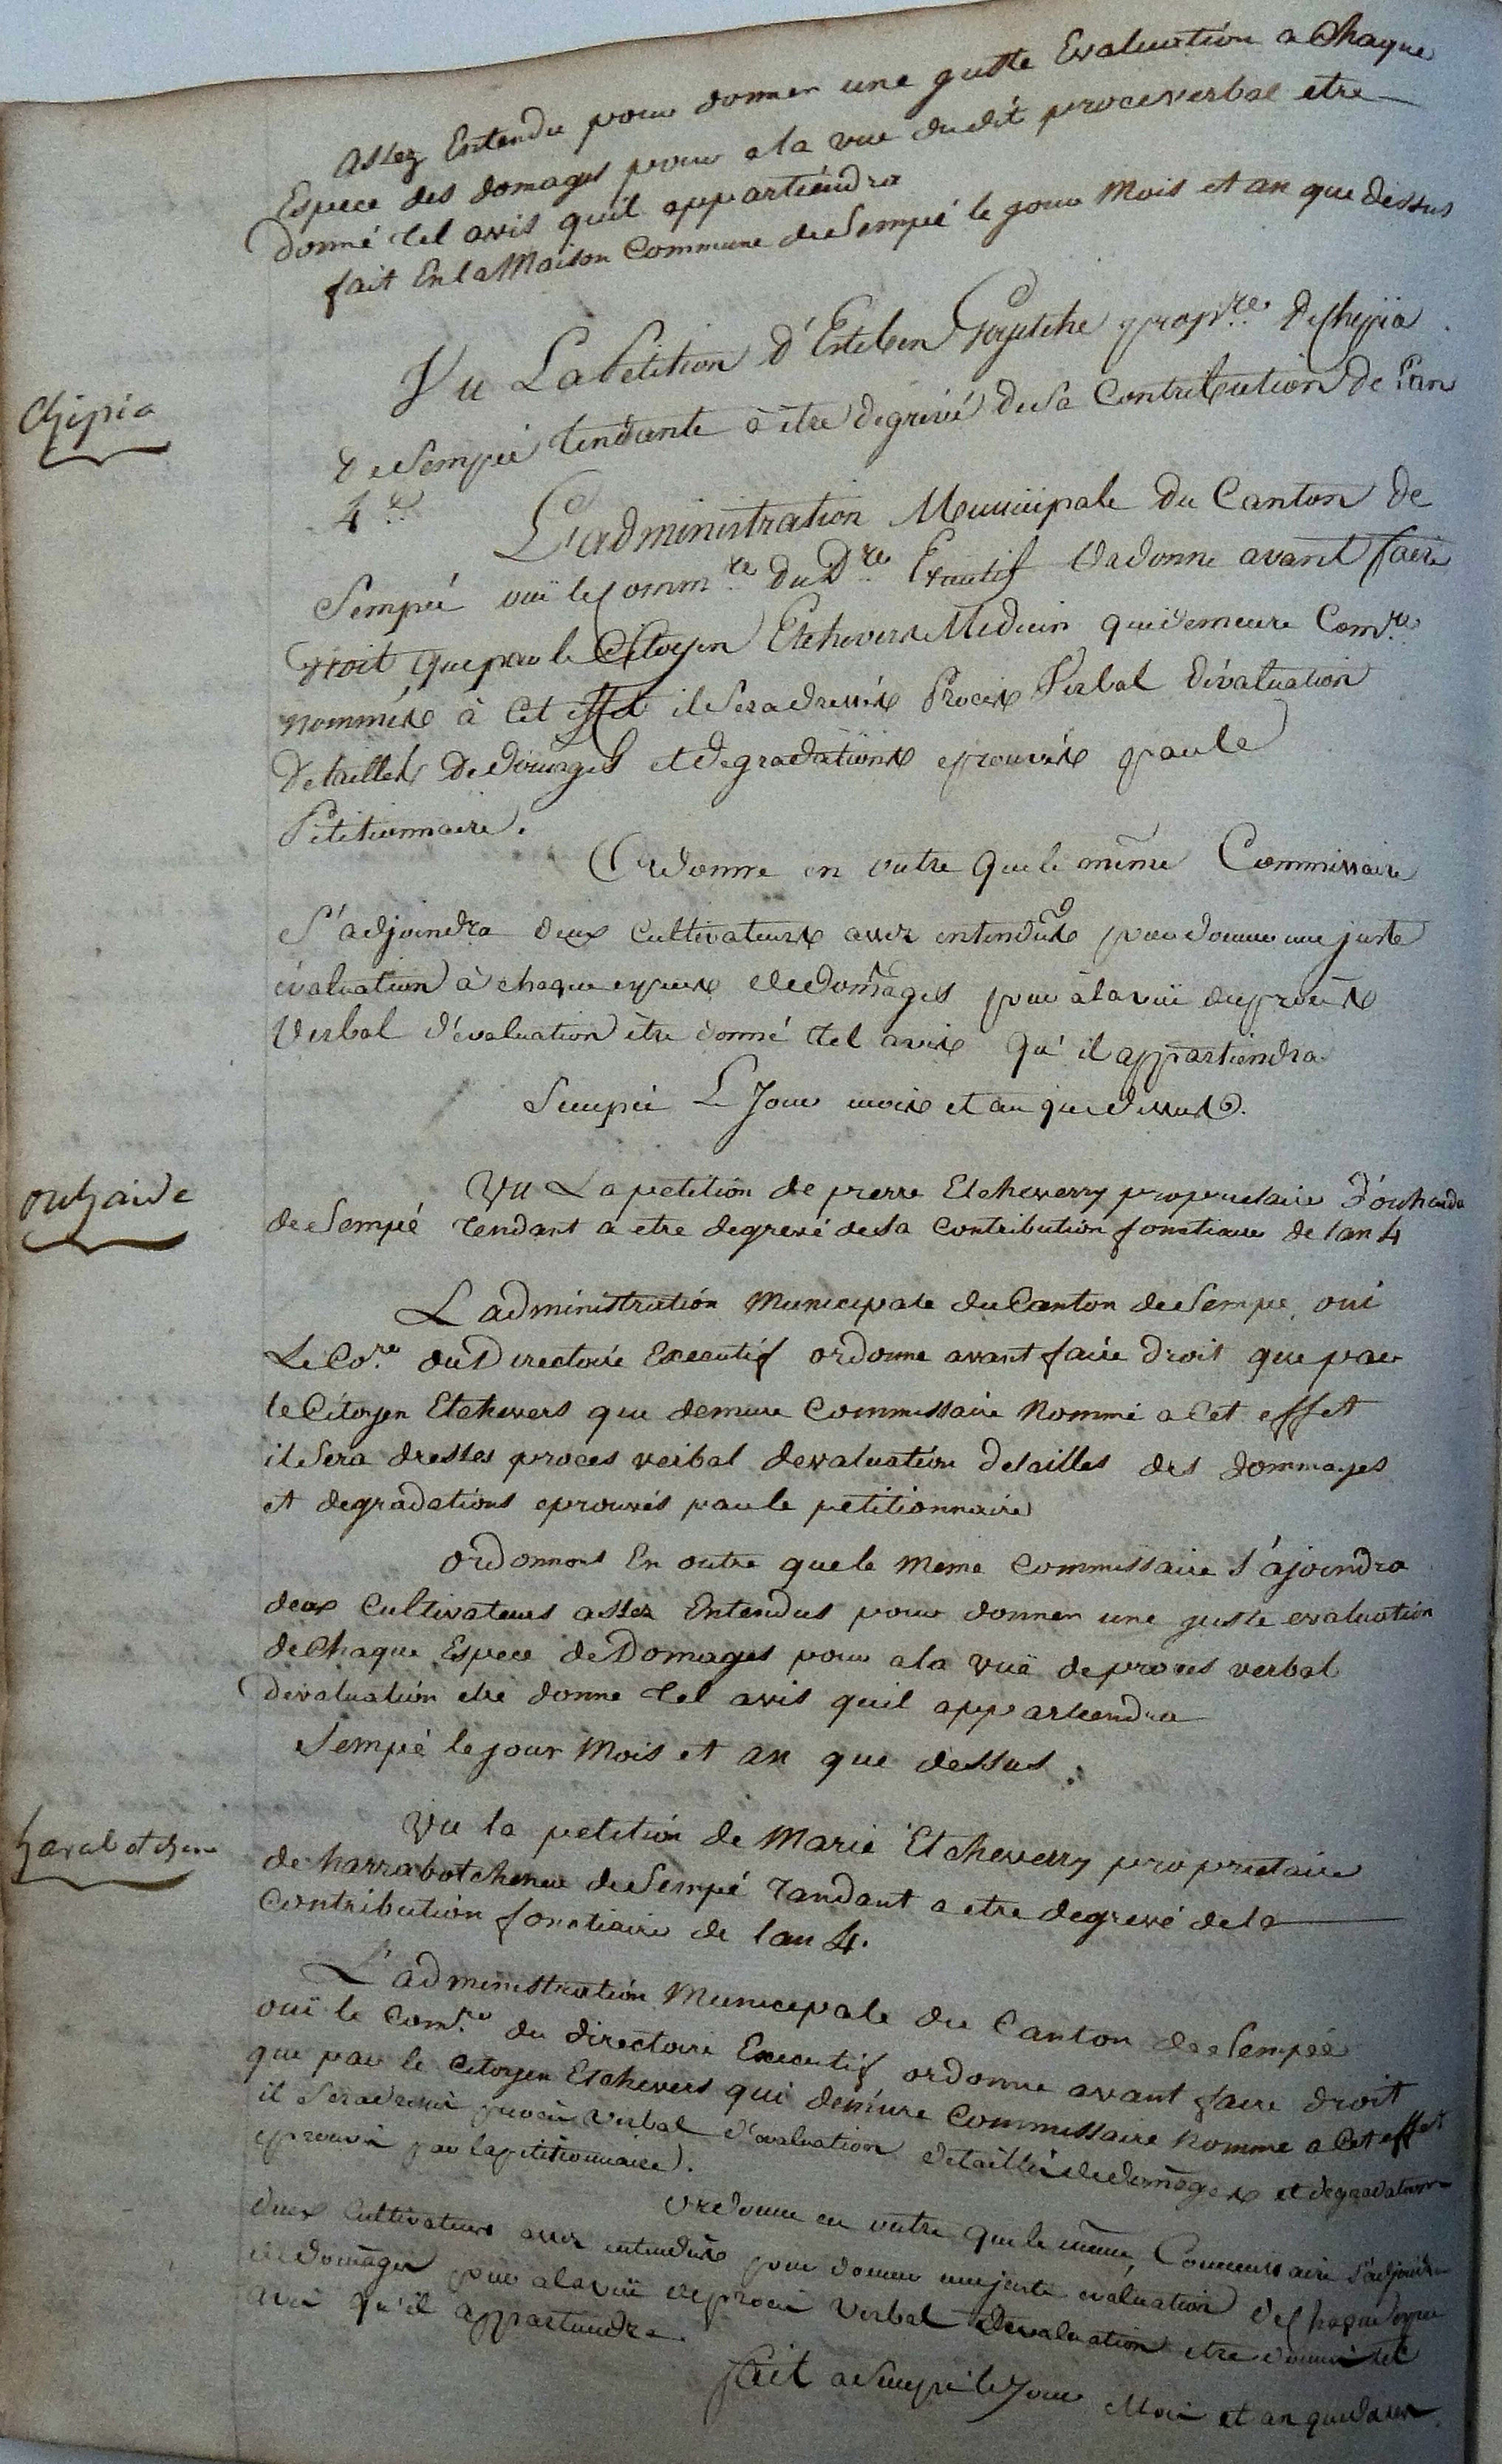 assez Entendu pour donner une juste Evaluation a Chaque
Espece des domages pour a la vue du dit proceverbal etre
donné tel avis quil appartiendra
fait En la Maison Commune de Sempé le jour Mois et an que dessus
Chipia
Vu La Petition d'Esteben propre. De Chipia
de Sempé tendante à être degrévé de Sa Contribution de l'an
4e.
L'administration Municipale du Canton de
Sempé ouï le Commre. du Dre. Exécutif Ordonne avant faire
droit que par le Citoyen Etchevers Medecin qui demeure Comre.
nommés à Cet effet il Sera dressés Procés Verbal d'évaluation
Detaillés De domages et degradations eprouvés par le
Petitionnaire.
Ordonne en outre que le même Commissaire
S'adjoindra deux Cultivateurs assez entendus pour donner une juste
évaluation à chaque espece de domages pour à la vuë du procés
Verbal d'évaluation être donné tel avis qu'il appartiendra.
Sempé Le Jour mois et an que dessus.
ouhaide
Vu La petition de pierre Etcheverry proprietaire d'ouhaide
de Sempé tendant a etre degrevé de sa Contribution fonctiaire de lan 4
L administration Municipale du Canton de Sempé oui
Le Core. du Directoire Executif ordonne avant faire droit que par
le Citoyen Etchevers que demeure Commissaire Nommé a Cet effet
il Sera dresses proces verbal devaluation detailles des dommages
et degradations eprouvés par le petitionnaire
ordonnons En outre que le meme Commissaire s'ajoindra
deux Cultivateurs assez Entendus pour donner une juste evaluation
de Chaque Espece de Domages pour a la vuë de proces verbal
devaluation etre donne tel avis quil appartiendra
Sempé le jour Mois et an que dessus.
Vu la petition de Marie Etcheverry proprietaire
de harrabotchenea de Sempé Tandant a etre degrevé de la
Contribution fonctiaire de l an 4.
L'administration Municipale du Canton de Sempé
ouï le Comre. du directoire Executif ordonne avant faire droit
que par le Citoyen Etchevers qui demeure Commissaire Nomme a Cet effet
il Sera dressé procés Verbal d'evaluation detaillé de domages et degradations
eprouvés par la petitionnaire.
ordonne en outre que le même Commissaire s'adjoindra
deux Cultivateurs assez entendus pour donner une juste evaluation de Chaque espece
de domages pour a la vuë de procés Verbal devaluation etre donné tel
avis qu'il appartiendra.
fait a Sempé le Jour Mois et an que dessus